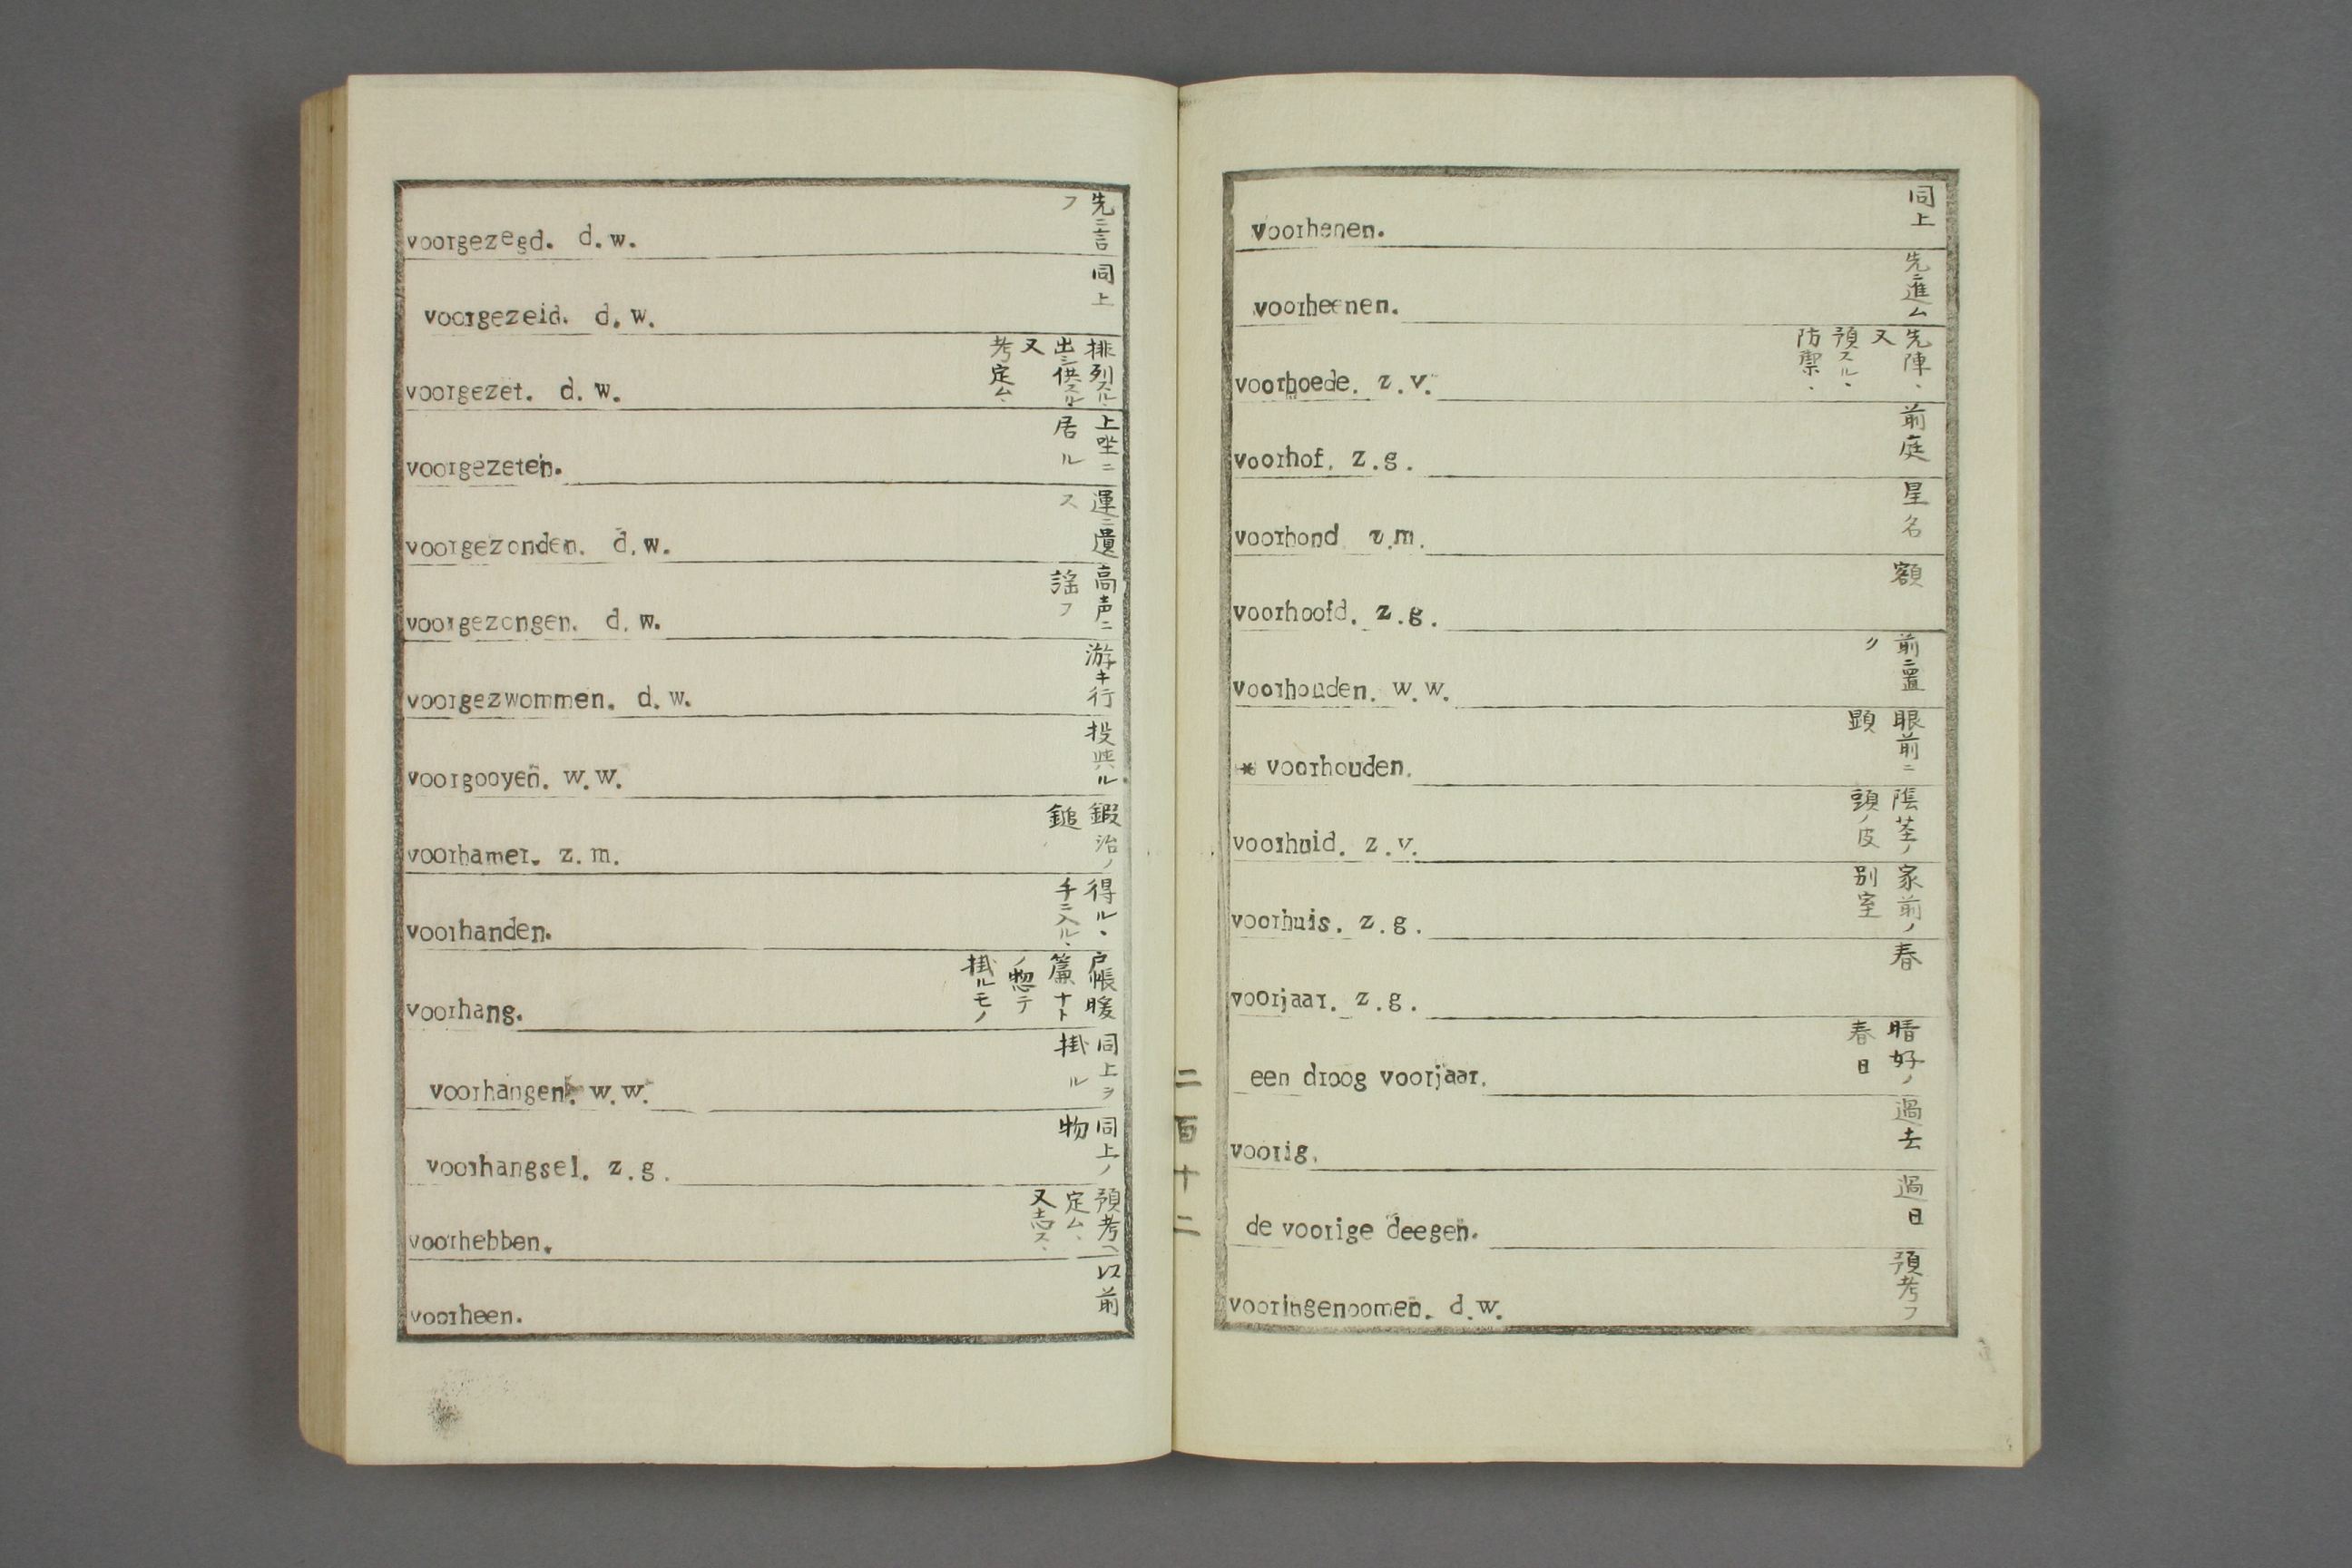 voorgezegd. d.w.
先ニ言
フ
voorgezeid. d.w.
同上
voorgezet. d.w.
排列スル、
出シ供スル
又
考定ム、
voorgezeten.
上坐ニ
居ル
voorgezonden. d.w.
運ニ遣
ス
voorgezongen. d.w.
高声ニ
謡フ
voorgezwommen. d.w.
游キ行
voorgooyen. w.w.
投與ル
voorhamer. z.m.
鍜冶ノ
鎚
voorhanden.
得ル、
手ニ入ル、
voorhang.
戸帳暖
簾ナト
ノ惣テ
掛ルモノ
voorhangen. w.w.
同上ヲ
掛ル
voorhangsel. z.g.
同上ノ
物
voorhebben.
預考ヘ
定ム、
又志ス、
voorheen.
以前
二百十二
voorhenen.
同上
voorheenen.
先ニ進ム
voorhoede. z.v.
先陣、
又
預スル、
防禦、
voorhof. z.g.
前庭
voorhond z.m.
星名
voorhoofd. z.g.
額
voorhouden. w.w.
前ニ置
リ
* voorhouden.
眼前ニ
顕
voorhuid. z.v.
陰茎ノ
頭ノ皮
voorhuis. z.g.
家前ノ
別室
voorjaar. z.g.
春
een droog voorjaar.
晴好ノ
春日
voorig.
過去
de voorige deegen.
過日
vooringenoomen. d.w.
預考フ